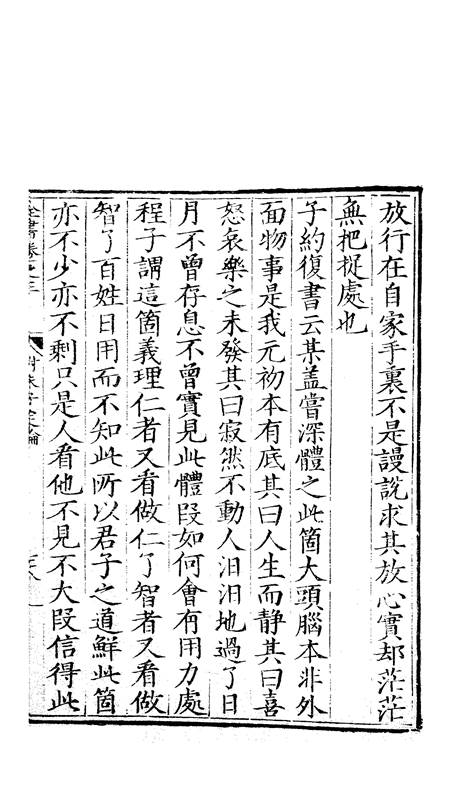 放行在自家手裏不是謾說求其放心實却茫茫
無把捉處也
子約復書云某盖嘗深體之此箇大頭腦本非外
面物事是我元初本有底其曰人生而静其曰喜
怒哀樂之未發其曰寂然不動人汨汨地過了日
月不曾存息不曾實見此體段如何會有用力處
程子謂這箇義理仁者又看做仁了智者又看做
智了百姓日用而不知此所以君子之道鮮此箇
亦不少亦不剩只是人看他不見不大段信得此